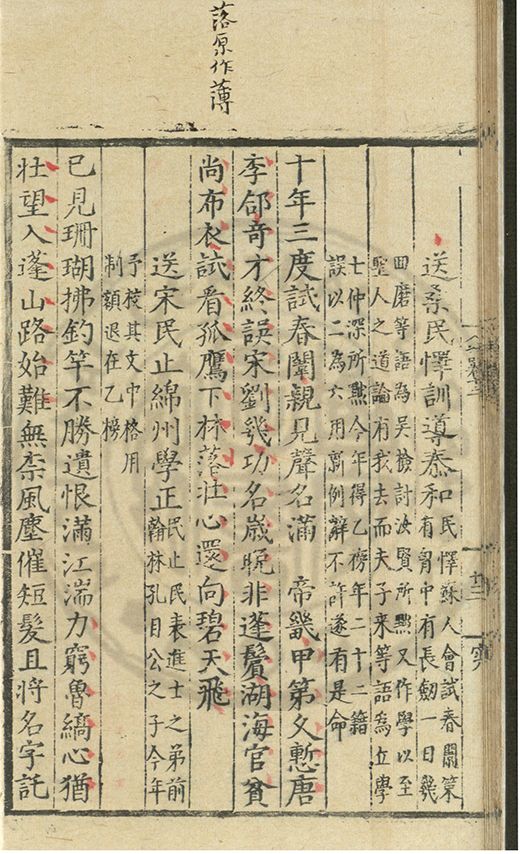 落原作薄
送桑民懌訓導泰和民懌蘇人會試春闈策
有胷中有長劒一日幾
回磨等語為吳檢討汝賢所黜又作學以至
聖人之道論有我去而夫子来等語為丘學
士仲深所黜今年得乙榜年二十二籍
誤以二為六用新例辭不許遂有是命
十年三度試春闈親見聲名滿 帝畿甲第文慙唐
李郃奇才終誤宋劉幾功名嵗晚非蓬鬢湖海官貧
尚布衣試看孤鷹下林落壮心還向碧天飛
送宋民止綿州學正民止民表進士之弟前
翰林孔目公之子今年
予校其文中格用
制額退在乙榜
已見珊瑚拂釣竿不勝遺恨滿江湍力窮魯縞心猶
壮望入蓬山路始難無柰風塵催短髮且將名字託
十三